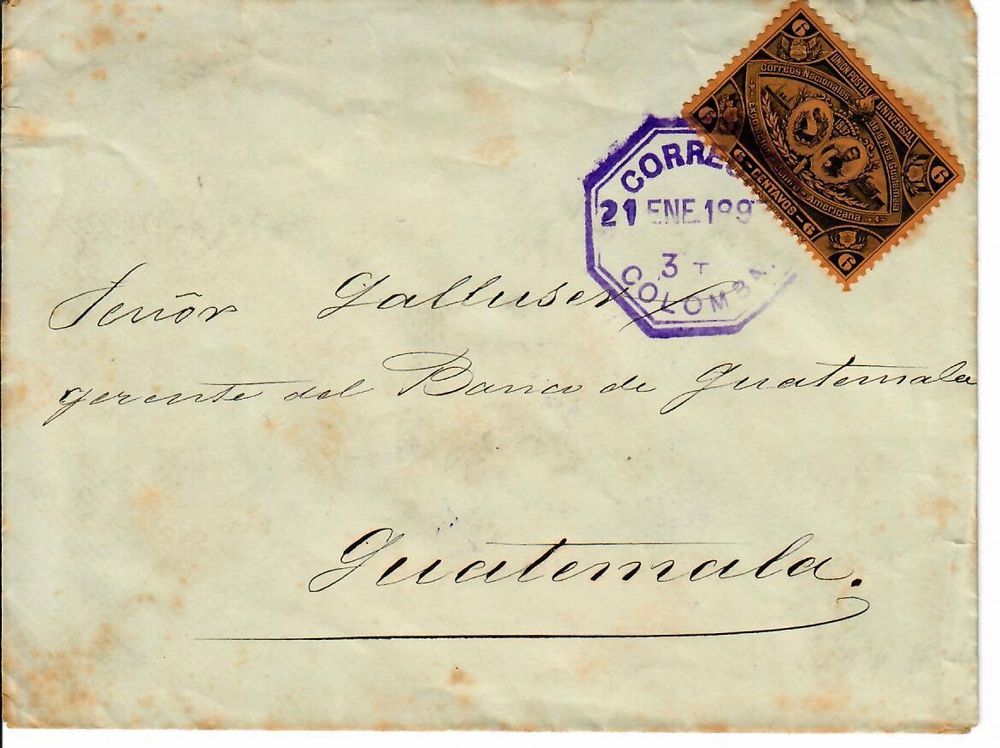 6
6
6
6
UNION POSTAL UNIVERSAL
Correos Nacionales de la R. de Guatemala
1897
Americana
6 - CENTAVOS - 6
CORRE
21 ENE. 189
3 T
COLOMBA.
Señor Galluser
gerente del Banco de Guatemala
Guatemala.